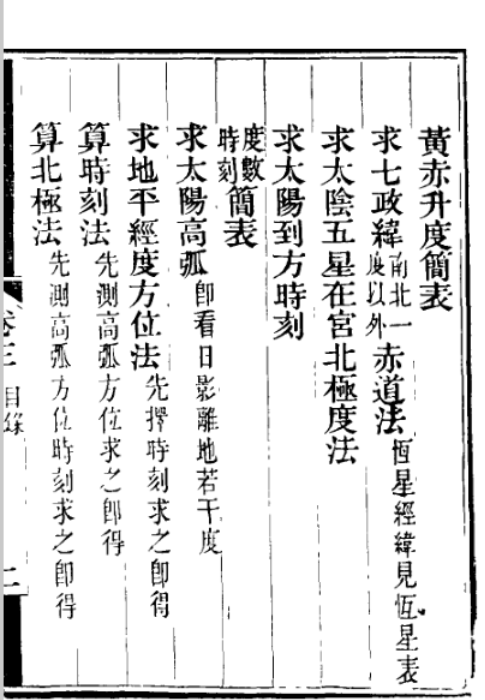 黃赤升度簡表
求七政緯南北一度以外赤道法恆星經緯見恆星表
求太陰五星在宮北極度法
求太陽到方時刻
度數時刻簡表
求太陽高弧卽看日影離地若干度
求地平經度方位法先擇時刻求之卽得
算時刻法先測高弧方位求之卽得
算北極法先測高弧方位時刻求之卽得
卷三 目錄 二